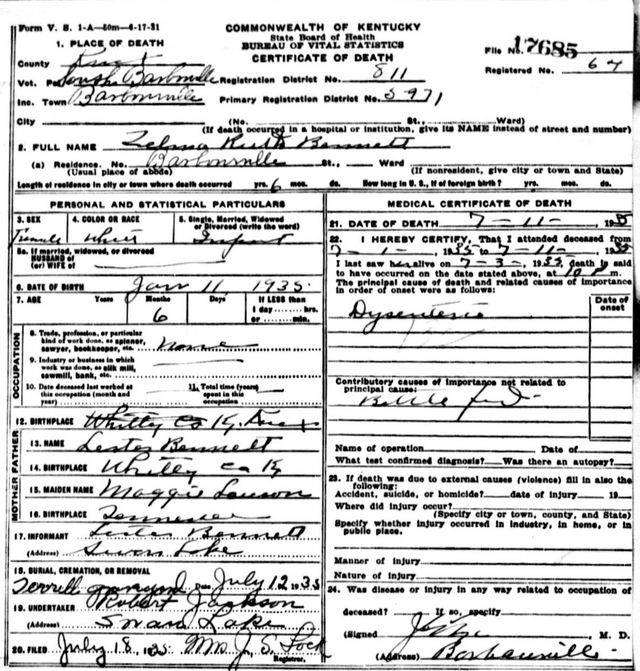 Form V. S. 1-A—50m—6-17-31
COMMONWEALTH OF KENTUCKY
State Board of Health
BUREAU OF VITAL STATISTICS
CERTIFICATE OF DEATH
File No. 17685
Registered No. 64
1. PLACE OF DEATH
County Knox
Vot. Pct. South Barbourville Registration District No. 811
Inc. Town Barbourville Primary Registration District No. 5971
City (No. St., Ward)
(If death occurred in a hospital or institution, give its NAME instead of street and number)
2. FULL NAME Zelma Ruth Bennett
(a) Residence. No. Barbourville St., Ward
(Usual place of abode) (If nonresident, give city or town and State)
Length of residence in city or town where death occurred yrs. 6 mos. ds. How long in U. S., if of foreign birth? yrs. mos. ds.
PERSONAL AND STATISTICAL PARTICULARS
3. SEX 4. COLOR OR RACE 5. Single, Married, Widowed
or Divorced (write the word)
Female White Infant
5a. If married, widowed, or divorced
HUSBAND of
(or) WIFE of
6. DATE OF BIRTH Jan 11 1935
7. AGE Years Months Days If LESS than
1 day hrs.
6 or min.
OCCUPATION
8. Trade, profession, or particular
kind of work done, as spinner,
sawyer, bookkeeper, etc. None
9. Industry or business in which
work was done, as silk mill,
sawmill, bank, etc.
10. Date deceased last worked at 11. Total time (years)
this occupation (month and spent in this
year) occupation
12. BIRTHPLACE Whitly Co Ky.
MOTHER FATHER
13. NAME Lester Bennett
14. BIRTHPLACE Whitly Co Ky
15. MAIDEN NAME Maggie Lawson
16. BIRTHPLACE Tennessee
17. INFORMANT Lester Bennett
(Address) Swan Lake
18. BURIAL, CREMATION, OR REMOVAL
Terrill Date July 12 1935
19. UNDERTAKER Robert Jackson
(Address) Swan Lake
20. FILED July 18, 1935 Mrs J. S. Lock
Registrar.
MEDICAL CERTIFICATE OF DEATH
21. DATE OF DEATH 7-11- 1935
22. I HEREBY CERTIFY, That I attended deceased from
7-1- 1935 to 7-11- 1935
I last saw her alive on 7-3- 1935, death is said
to have occurred on the date stated above, at 10 P m.
The principal cause of death and related causes of importance
in order of onset were as follows:
Date of
onset
Dysenteria
Contributory causes of importance not related to
principal cause:
Bottle fed
Name of operation Date of
What test confirmed diagnosis? Was there an autopsy?
23. If death was due to external causes (violence) fill in also the
following:
Accident, suicide, or homicide? date of injury 19
Where did injury occur?
(Specify city or town, county, and State)
Specify whether injury occurred in industry, in home, or in
public place.
Manner of injury
Nature of injury
24. Was disease or injury in any way related to occupation of
deceased? If so, specify
(Signed) , M. D.
(Address) Barbourville